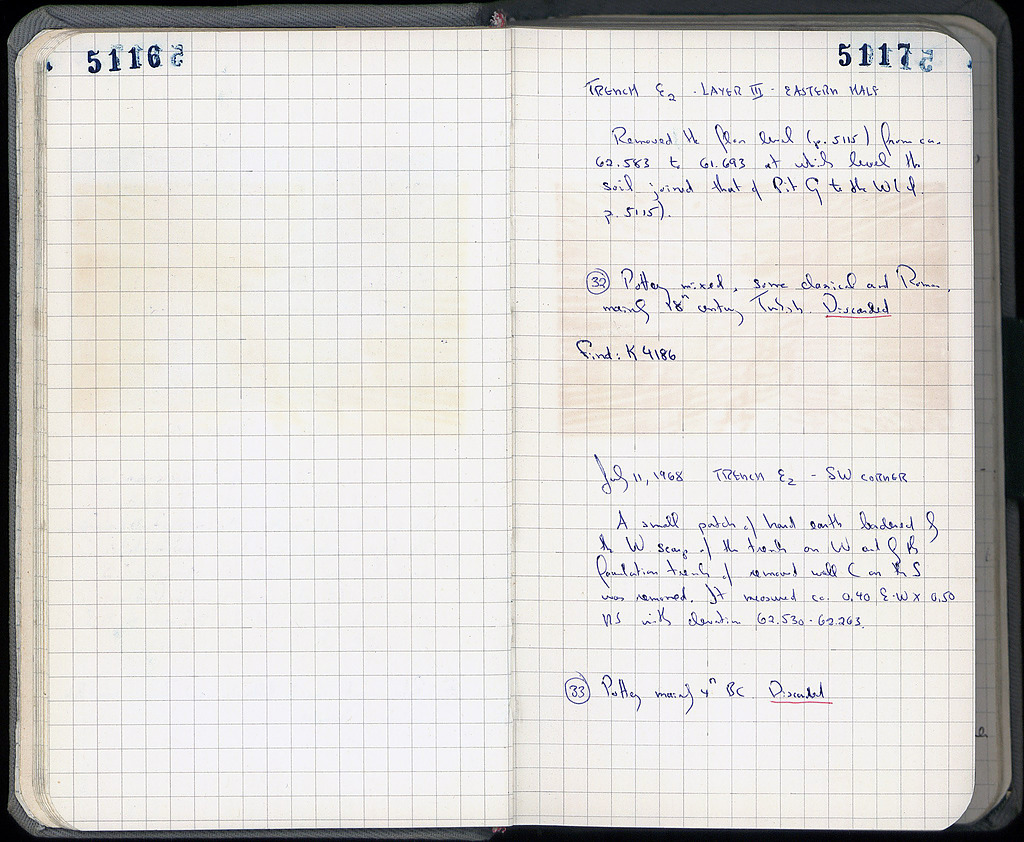 5116
5117
TRENCH E2 · LAYER III · EASTERN HALF
Removed the floor level (p. 5115) from ca.
62.583 to 61.693 at which level the
soil joined that of Pit G to the W (cf.
p. 5115).
32 Pottery mixed, some classical and Roman,
mainly 18th century Turkish. Discarded
Find: K 4186
July 11, 1968 TRENCH E2 - SW CORNER
A small patch of hard earth bordered by
the W scarp of the trench on W and by the
foundation trench of removed wall C on the S
was removed. It measured ca. 0,40 E-W x 0,50
NS with elevation 62.530 - 62.263.
33 Pottery mainly 4th BC. Discarded